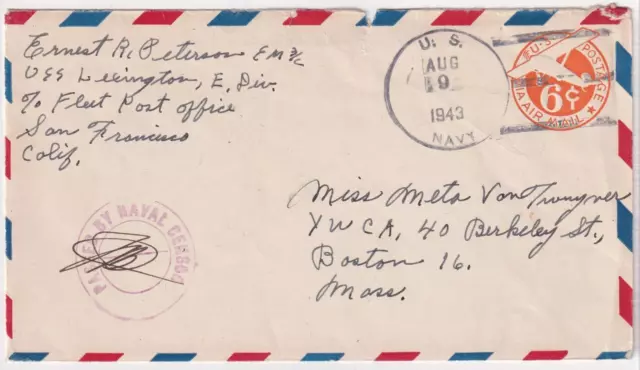 Ernest R. Peterson EM 3/c
USS Lexington, E. Div.
c/o Fleet Post Office
San Francisco
Calif.
U. S.
AUG
9
1943
NAVY
U.S. POSTAGE
VIA AIR MAIL
6¢
PASSED BY NAVAL CENSOR
Miss Meta Van
YWCA, 40 Berkeley St.,
Boston 16.
Mass.